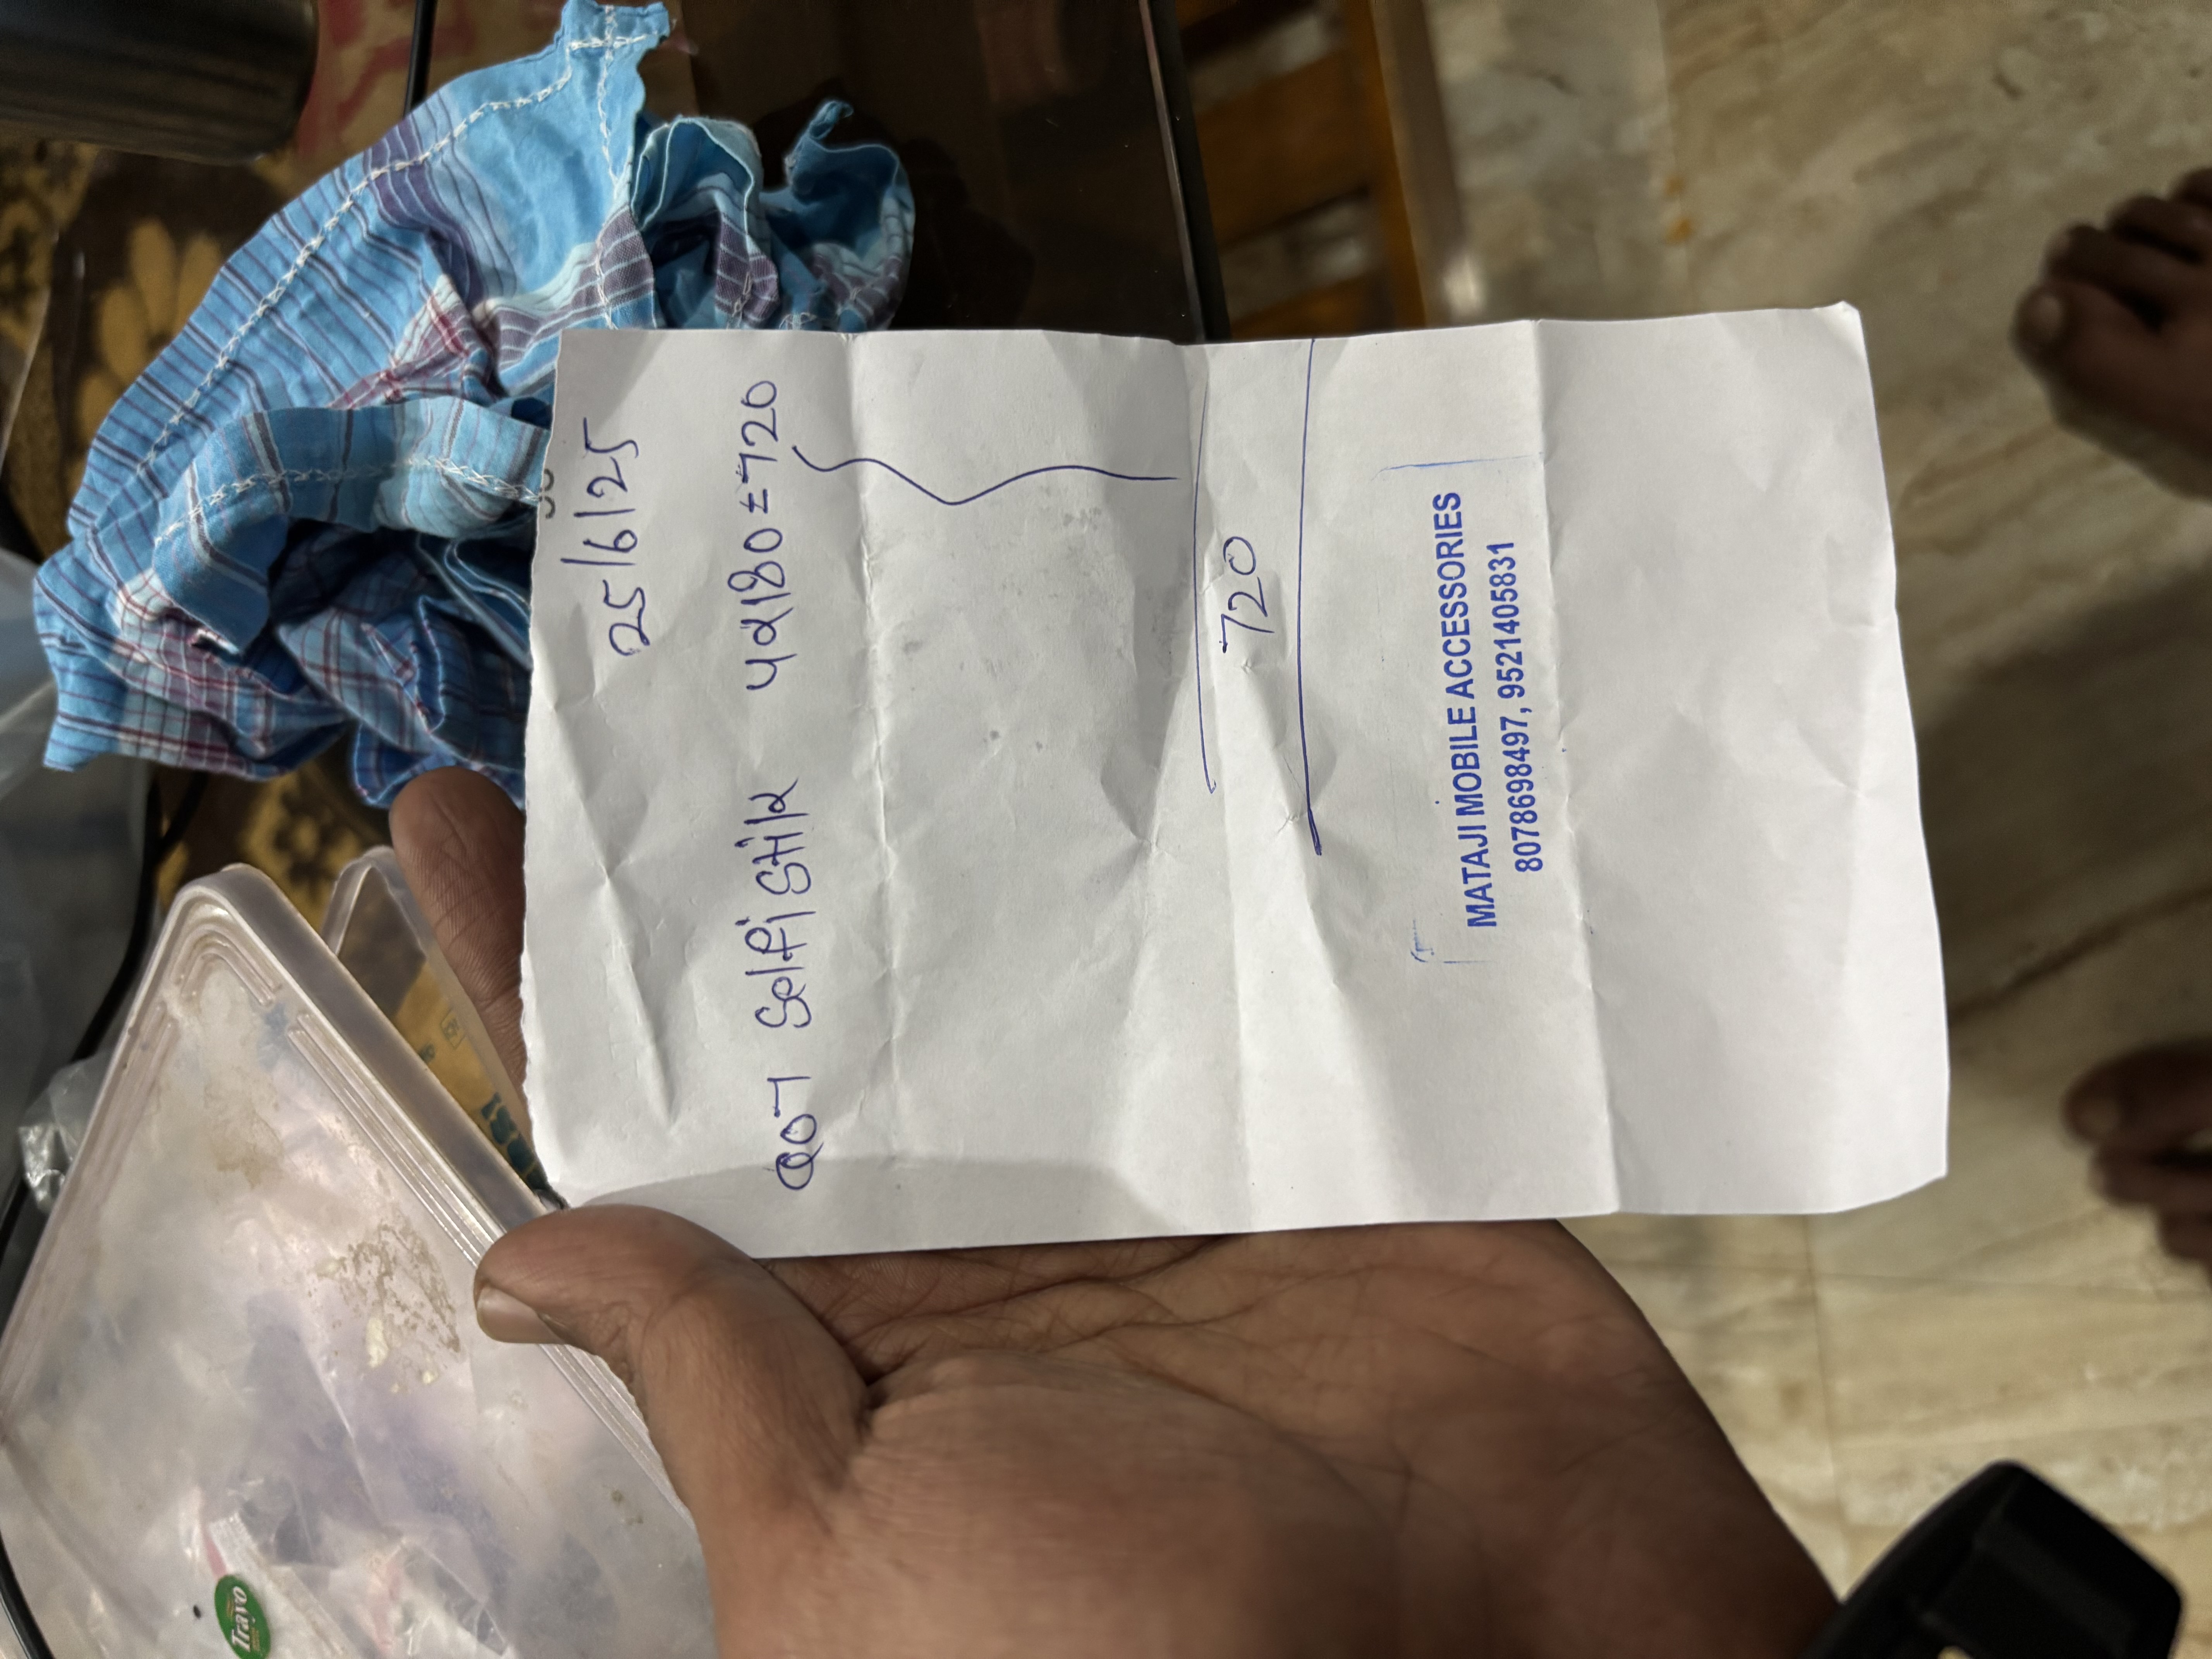 Travo
25/6/25
Q07 Selfi Stik 4x180=720
720
MATAJI MOBILE ACCESSORIES
8078698497, 9521405831